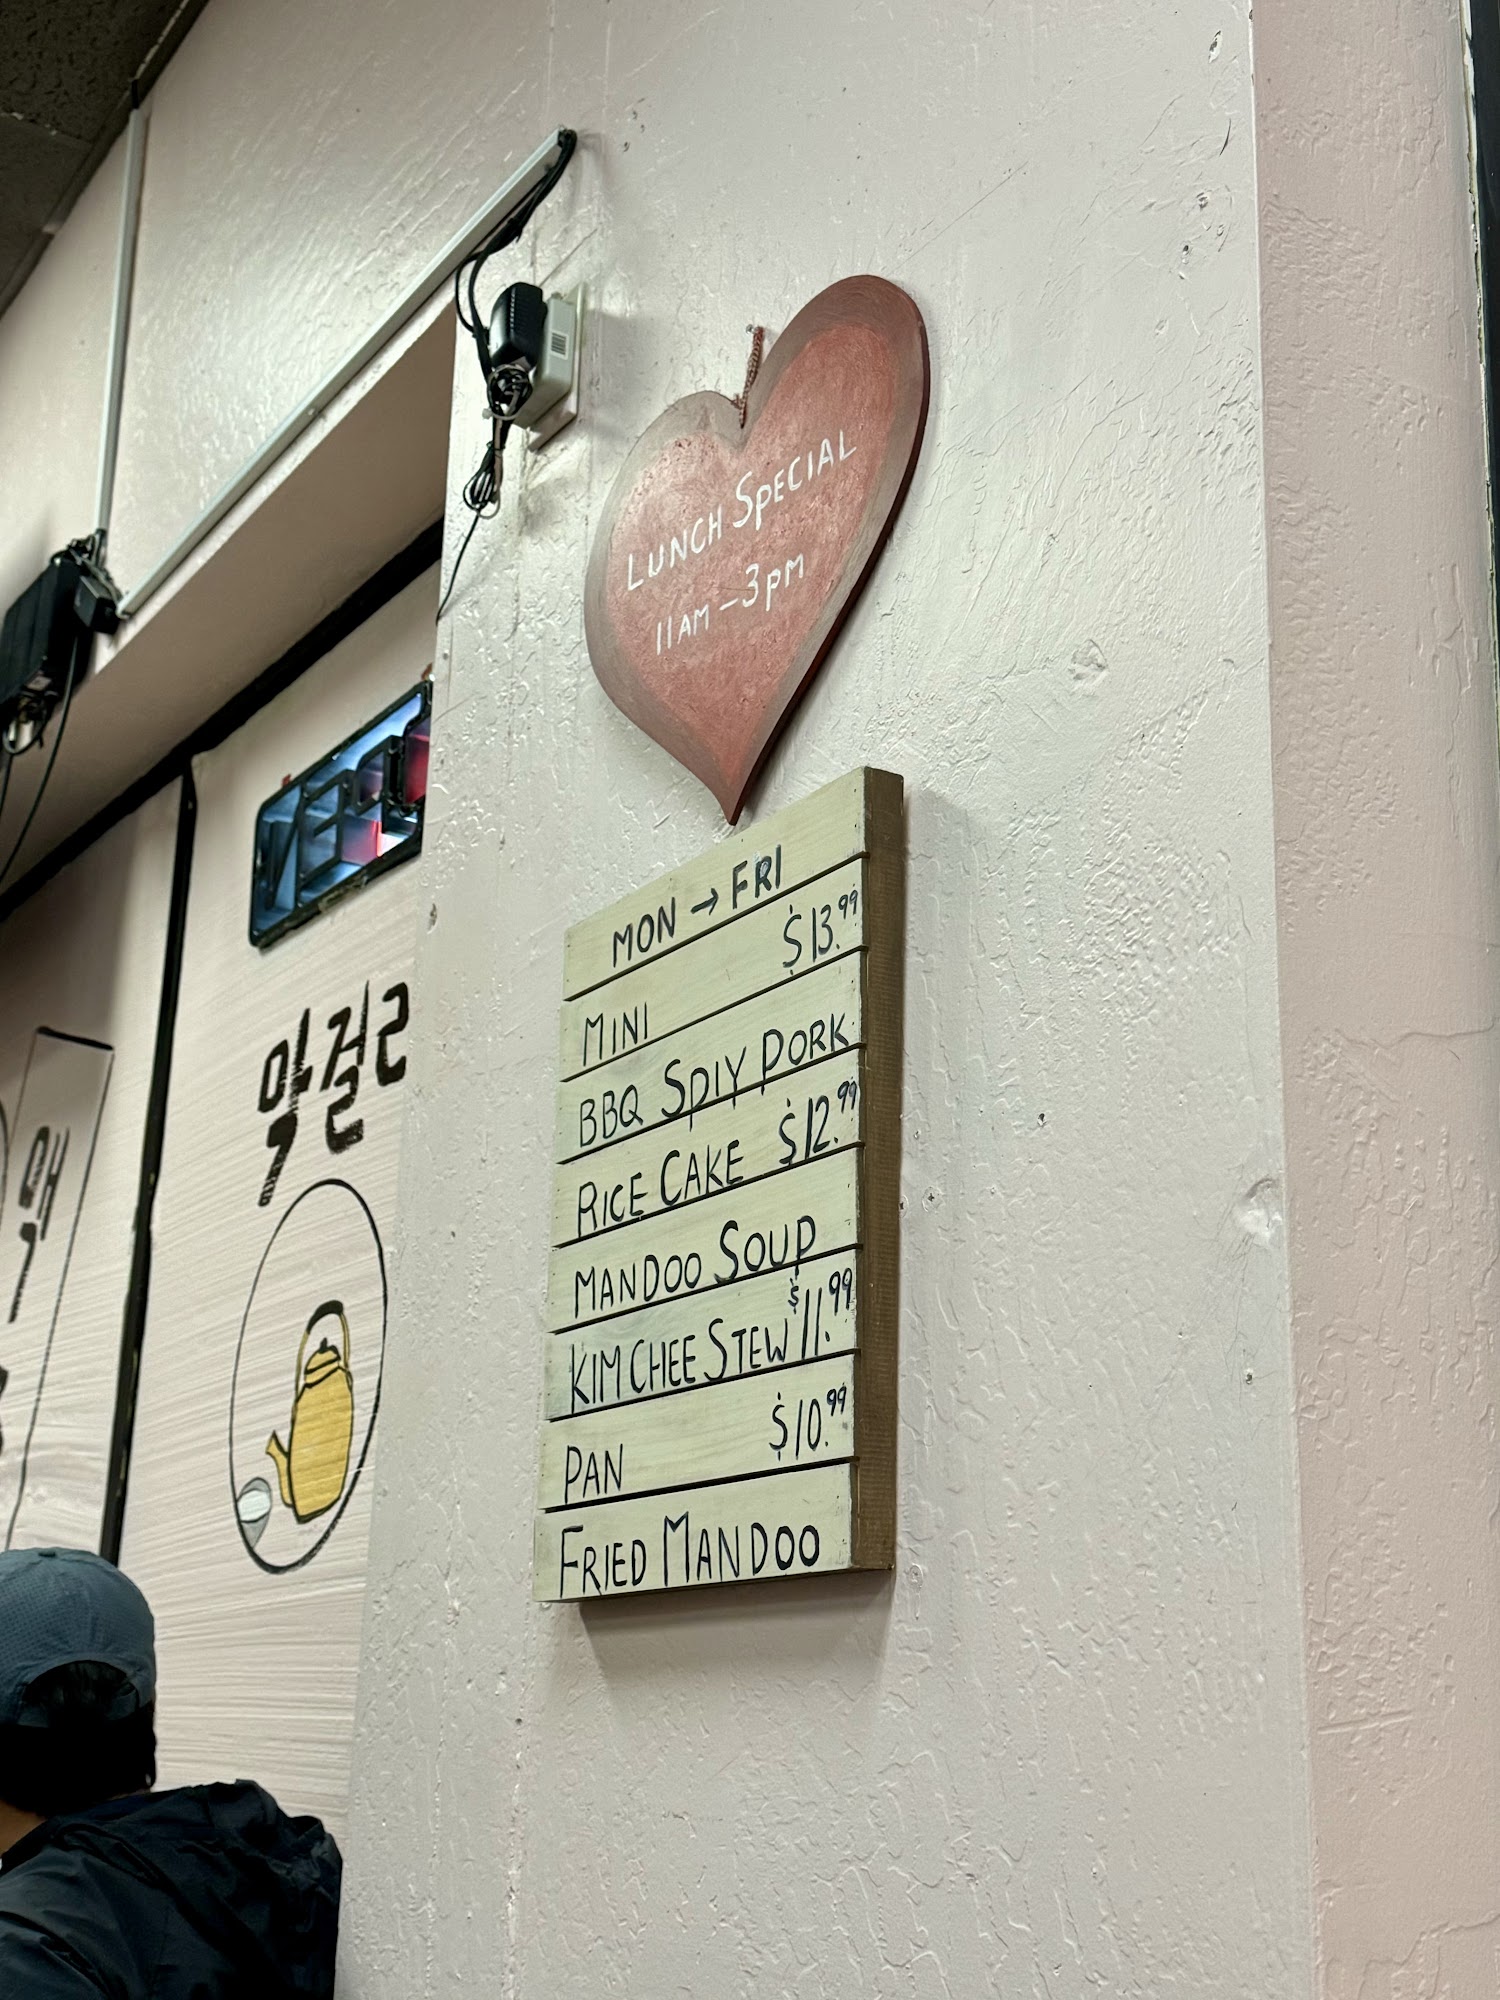 LUNCH SPECIAL
11AM-3PM
MON → FRI
$13.99
MINI
BBQ SPIY PORK
RICE CAKE $12.99
MANDOO SOUP
KIMCHEE STEW $11.99
PAN $10.99
FRIED MANDOO
막걸리